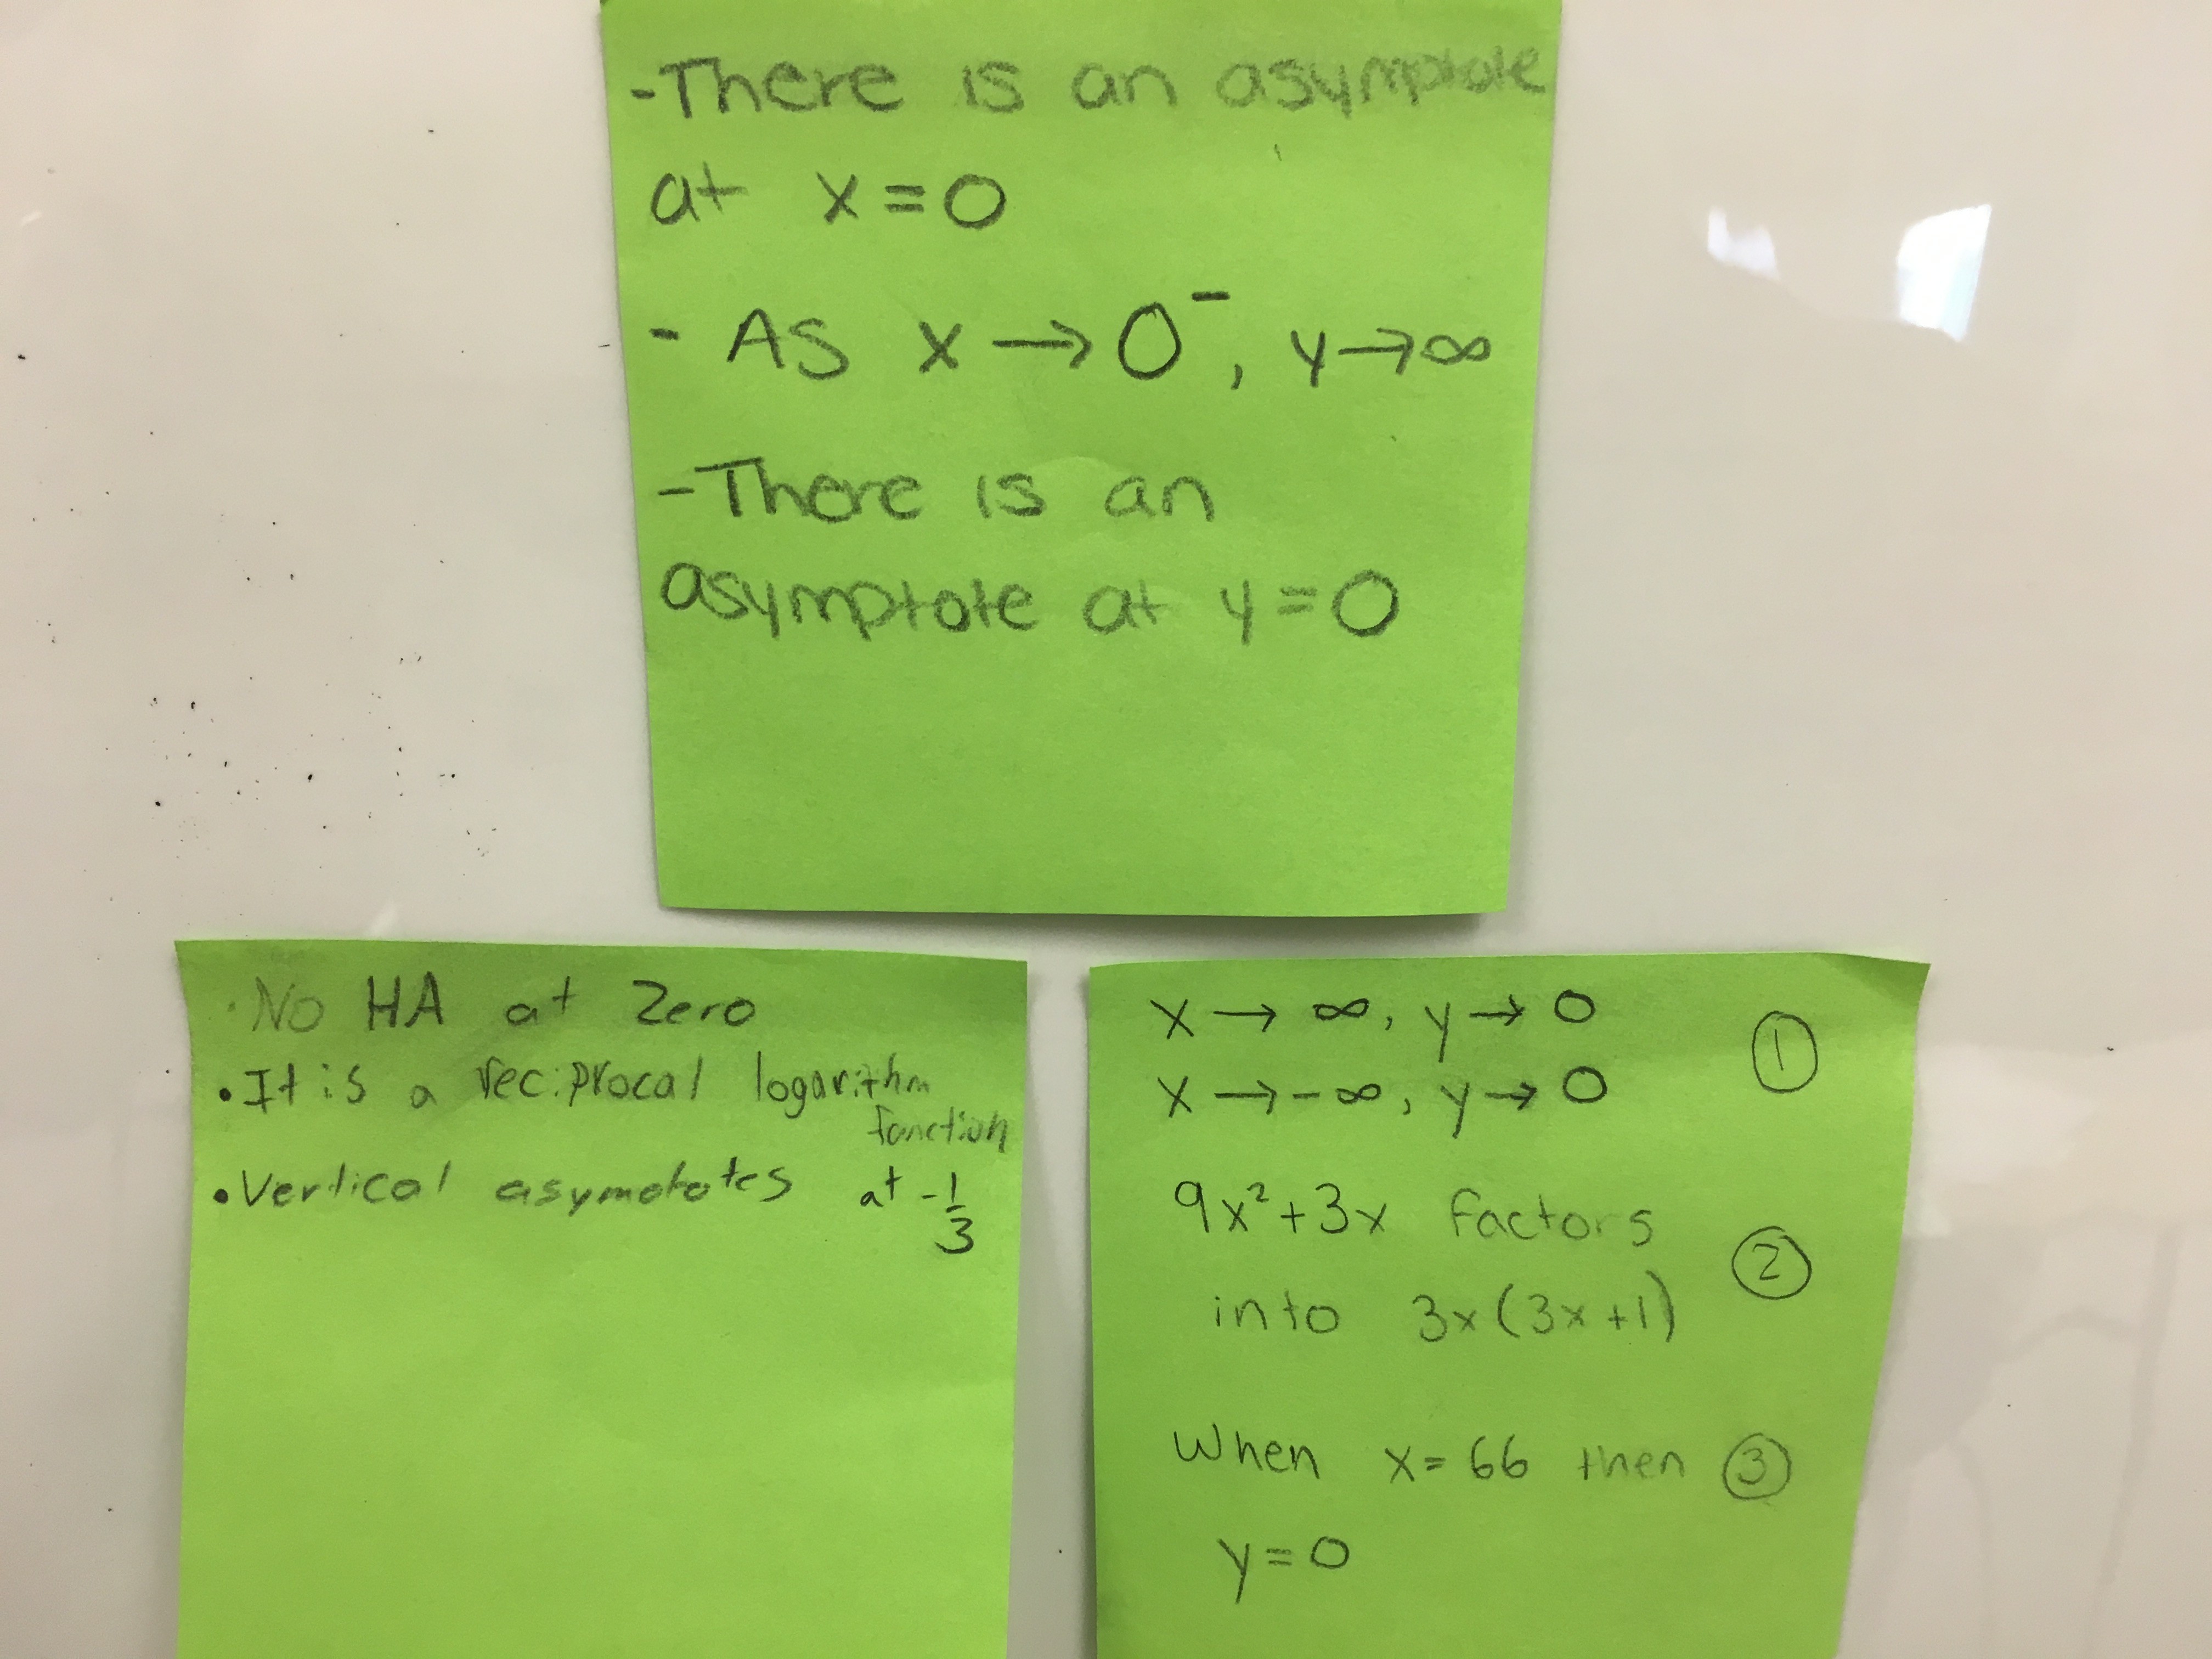 -There is an asymptote
at x=0
- As x→0⁻, y→∞
-There is an
asymptote at y=0
·No HA at Zero
•It is a reciprocal logarithm
function
•Vertical asymototes at -1/3
x→∞, y→0
x→-∞, y→0
①
9x²+3x factors
into 3x(3x+1)
②
When x=66 then ③
y=0